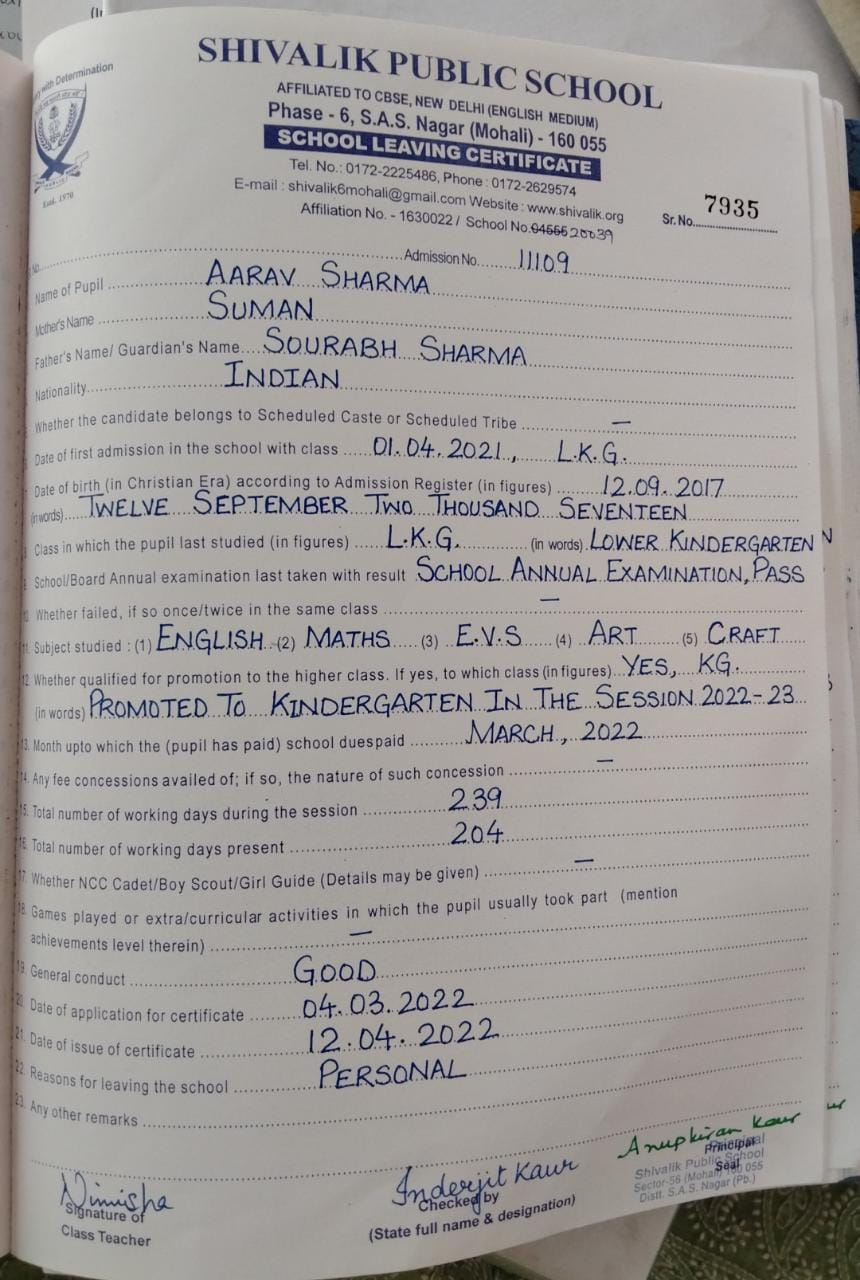 SHIVALIK PUBLIC SCHOOL
AFFILIATED TO CBSE, NEW DELHI (ENGLISH MEDIUM)
Phase - 6, S.A.S. Nagar (Mohali) - 160 055
SCHOOL LEAVING CERTIFICATE
Tel. No.: 0172-2225486, Phone : 0172-2629574
E-mail : shivalik6mohali@gmail.com Website : www.shivalik.org
Affiliation No. - 1630022 / School No. 04555 20039
with Determination
Estd. 1970
Sr. No. 7935
No. Admission No. 11109
Name of Pupil AARAV SHARMA
Mother's Name SUMAN
Father's Name/ Guardian's Name SOURABH SHARMA
Nationality INDIAN
Whether the candidate belongs to Scheduled Caste or Scheduled Tribe —
Date of first admission in the school with class 01.04.2021, L.K.G.
Date of birth (in Christian Era) according to Admission Register (in figures) 12.09.2017
(in words) TWELVE SEPTEMBER TWO THOUSAND SEVENTEEN
Class in which the pupil last studied (in figures) L.K.G. (in words) LOWER KINDERGARTEN
School/Board Annual examination last taken with result SCHOOL ANNUAL EXAMINATION, PASS
10. Whether failed, if so once/twice in the same class —
11. Subject studied : (1) ENGLISH (2) MATHS (3) E.V.S (4) ART (5) CRAFT
12. Whether qualified for promotion to the higher class. If yes, to which class (in figures) YES, KG.
(in words) PROMOTED TO KINDERGARTEN IN THE SESSION 2022-23
13. Month upto which the (pupil has paid) school duespaid MARCH, 2022
14. Any fee concessions availed of; if so, the nature of such concession —
15. Total number of working days during the session 239
16. Total number of working days present 204
17. Whether NCC Cadet/Boy Scout/Girl Guide (Details may be given) —
18. Games played or extra/curricular activities in which the pupil usually took part (mention
achievements level therein) —
19. General conduct GOOD
20. Date of application for certificate 04.03.2022
21. Date of issue of certificate 12.04.2022
22. Reasons for leaving the school PERSONAL
23. Any other remarks
Nimisha
Signature of
Class Teacher
Inderjit Kaur
Checked by
(State full name & designation)
Anupkiran Kaur
Principal
Seal
Principal
Shivalik Public School
Sector-56 (Mohali) 160 055
Distt. S.A.S. Nagar (Pb.)